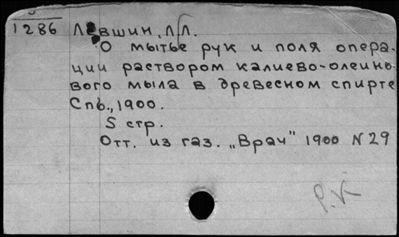 1286 Лёвшин, Л.Л.
О мытье рук и поля опера-
ции раствором калиево-олеино-
вого мыла в древесном спирте
Спб., 1900.
5 стр.
Отт. из газ. „Врач" 1900 N 29